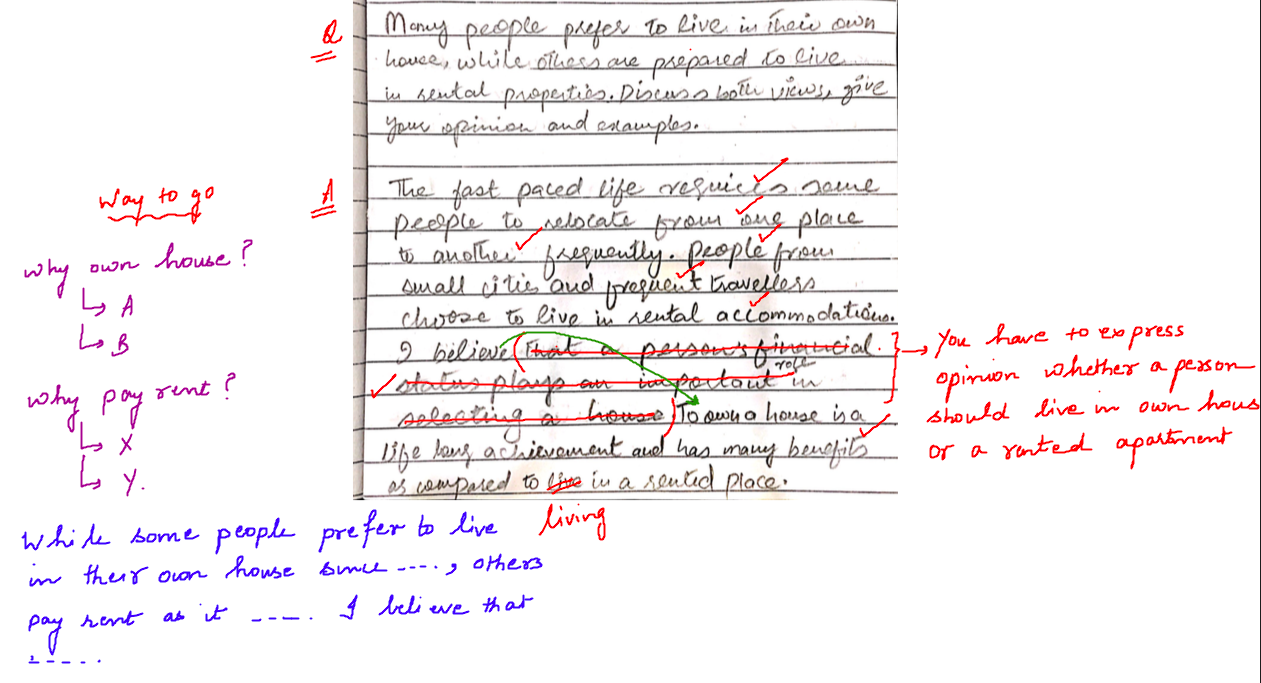 Q
Many people prefer to live in their own
house, while others are prepared to live
in rental properties. Discuss both views, give
your opinion and examples.
A
The fast paced life requires some
people to relocate from one place
to another frequently. People from
small cities and frequent travellers
choose to live in rental accommodations.
I believe that a person's financial
status plays an important role in
selecting a house To own a house is a
life long achievement and has many benefits
as compared to live in a rented place.
living
Way to go
Why own house?
A
B
Why pay rent?
X
Y.
You have to express
opinion whether a person
should live in own hous
or a rented apartment
While some people prefer to live
in their own house since ...., others
pay rent as it ----. I believe that
-----.